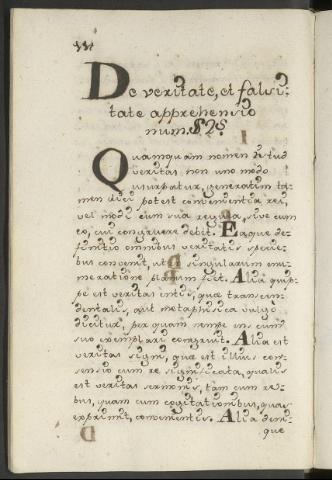 De veritate, et falsi-
tate apprehensio
num. §. 2º.
Quamquam nomen istud
veritas non uno modo
usurpatur, generatim ta-
men dici potest convenientia rei,
vel modi cum sua regula, sive cum
eo, cui congruere debet. Eaque de-
finitio omnibus veritatis specie-
bus convenit, ut singularum enu-
meratione planum fiet. Alia quip-
pe est veritas entis, quæ transcen-
dentalis, aut metaphisica vulgo
dicitur, per quam nempe ens cum
suo exemplari congruit. Alia est
veritas signi, quæ est illius con-
sensio cum re significata, qualis
est veritas sermonis, tam cum re-
bus, quam cum cogitationibus, quas
exprimit, convenientis. Alia deni-
que